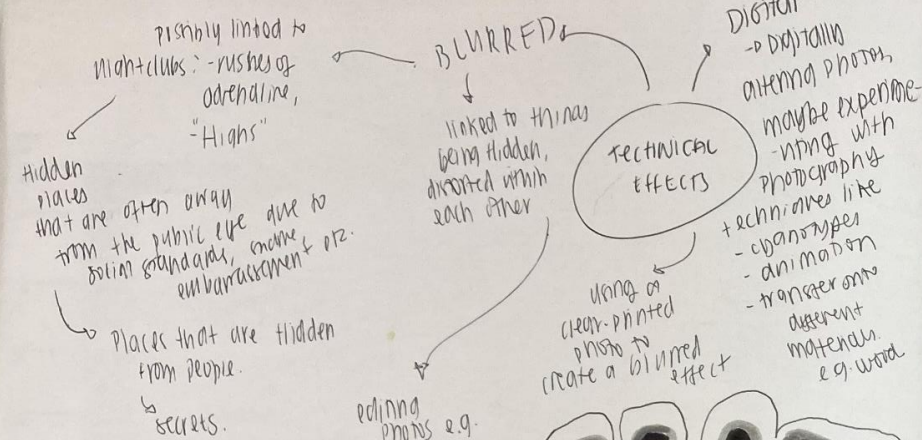 possibly linked to
nightclubs: -rushes of
adrenaline,
-"Highs"
Hidden
places
that are often away
from the public eye due to
social standards, shame,
embarrassment etc.
Places that are Hidden
from people.
secrets.
BLURRED
linked to things
being Hidden,
distorted within
each other
editing
photos e.g.
TECHNICAL
EFFECTS
using a
clear-printed
photo to
create a blurred
effect
Digital
Digitally
altering photos,
maybe experime-
-nting with
photography
techniques like
- cyanotypes
- animation
- transfer onto
different
materials.
e.g. wood